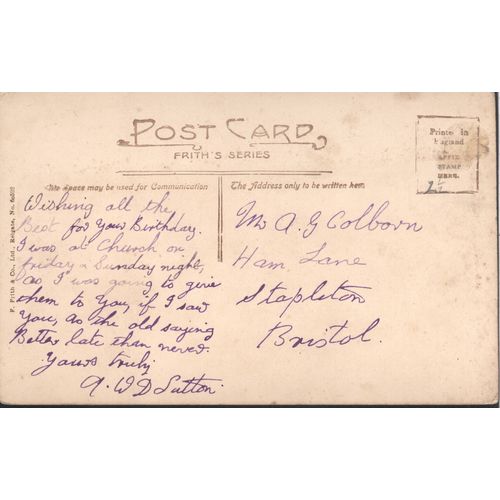 POST CARD
FRITH'S SERIES
Printed in
England
AFFIX
STAMP
HERE.
This space may be used for Communication
The Address only to be written here.
Wishing all the
Best for Your Birthday.
I was at Church on
friday & Sunday night,
as I was going to give
them to You, if I saw
You, as the old saying
Better late than never.
Yours truly
A. W D Sutton
Mr A. G Colborn
Ham Lane
Stapleton
Bristol.
F. Frith & Co., Ltd., Reigate, No.